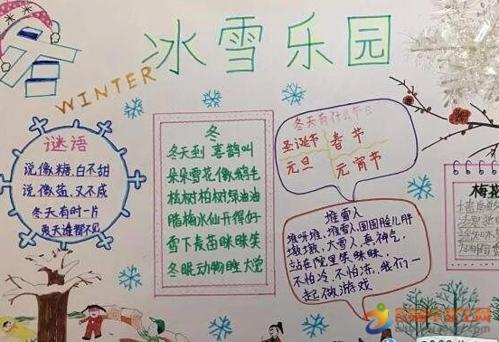 冬
冰雪乐园
WINTER
谜语
说像糖,白不甜
说像盐,又不咸
冬天有时一片
夏天谁都不见
冬
冬天到 喜鹊叫
朵朵雪花像鹅毛
松树柏树绿油油
腊梅水仙开得好
雪下麦苗眯眯笑
冬眠动物睡大觉
冬天有什么节日
圣诞节 春节
元旦 元宵节
堆雪人
堆呀堆,堆雪人,圆圆脸儿胖
墩墩,大雪人,真神气,
站在院里笑眯眯,
不怕冷,不怕冻,我们一
起做游戏
梅花